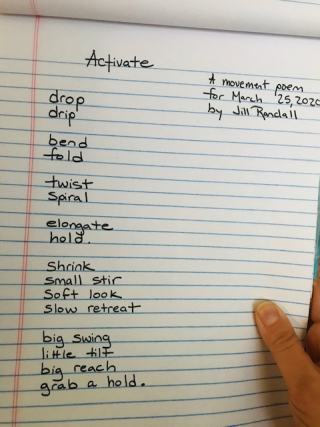 Activate
A movement poem
for March 25, 2020
by Jill Randall
drop
drip
bend
fold
twist
Spiral
elongate
hold.
Shrink
small stir
Soft look
slow retreat
big swing
little tilt
big reach
grab a hold.